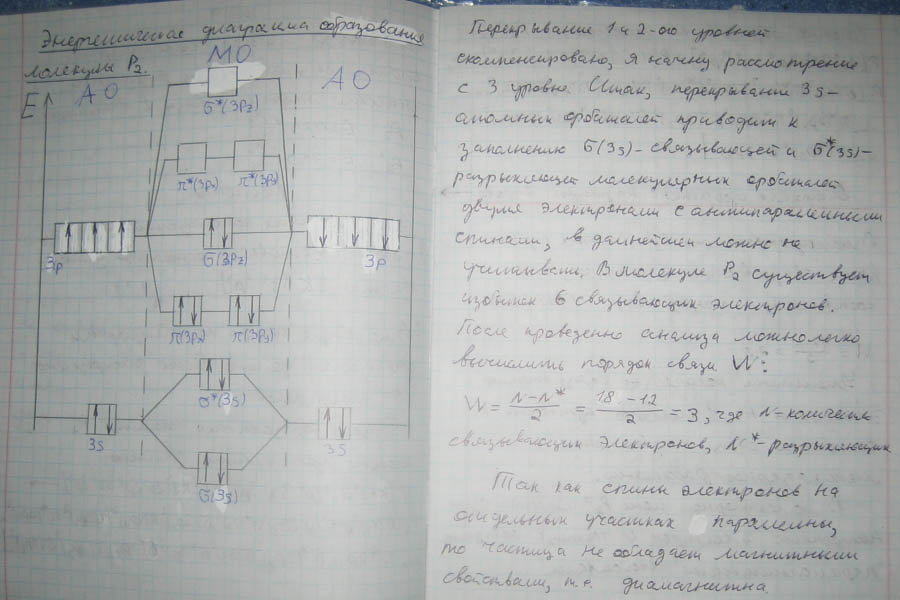 Энергетическая диаграмма образования
молекулы P₂.
E
АО
МО
АО
σ*(3pz)
π*(3px) π*(3py)
3p
σ(3pz)
3p
π(3px) π(3py)
σ*(3s)
3s
3s
σ(3s)
Перекрывание 1 и 2-ого уровней
скомпенсировано, я начну рассмотрение
с 3 уровня. Итак, перекрывание 3s-
атомных орбиталей приводит к
заполнению σ(3s)-связывающей и σ*(3s)-
разрыхляющей молекулярных орбиталей
двумя электронами с антипараллельными
спинами, в дальнейшем можно не
учитывать. В молекуле P₂ существует
избыток 6 связывающих электронов.
После проведенно анализа можно легко
вычислить порядок связи W:
W = (N-N*)/2 = (18-12)/2 = 3, где N-количество
связывающих электронов, N*-разрыхляющих
Так как спины электронов на
отдельных участках параллельны,
то частица не обладает магнитными
свойствами, т.е. диамагнитна.